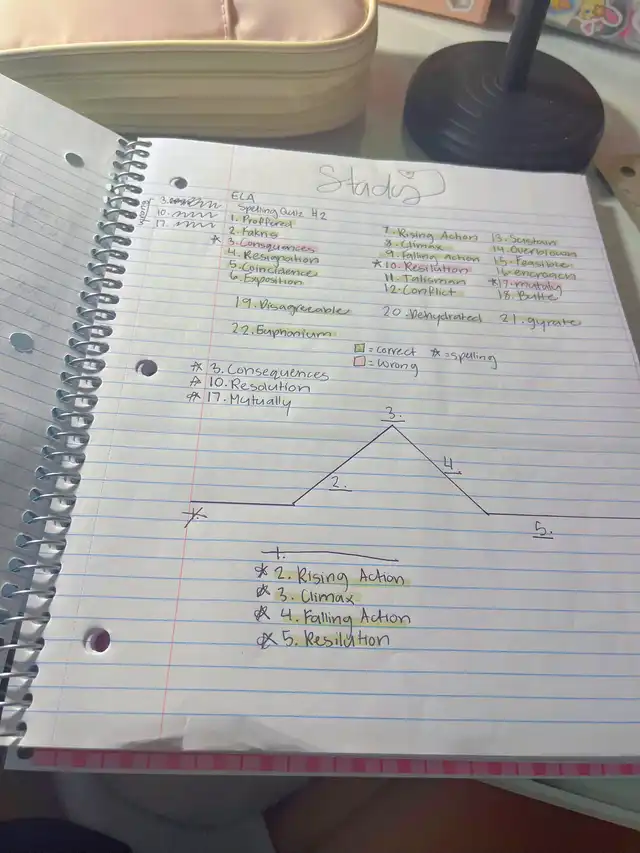 Study
ELA
Spelling Quiz #2
3.
10.
17.
1. Proffered
2. Fakris
* 3. Consquences
4. Resignation
5. Coincidence
6. Exposition
7. Rising Action
8. Climax
9. Falling action
* 10. Resilution
11. Talisman
12. Conflict
13. Sustain
14. Overblown
15. Feasible
16. encrogen
* 17. mutuly
18. Butte
19. Disagreeable
20. Dehydrated
21. gyrate
22. Euphonium
= correct * = spelling
= wrong
* 3. Consequences
* 10. Resolution
* 17. Mutually
3.
2.
4.
1.
5.
1.
* 2. Rising Action
* 3. Climax
* 4. Falling Action
* 5. Resilution